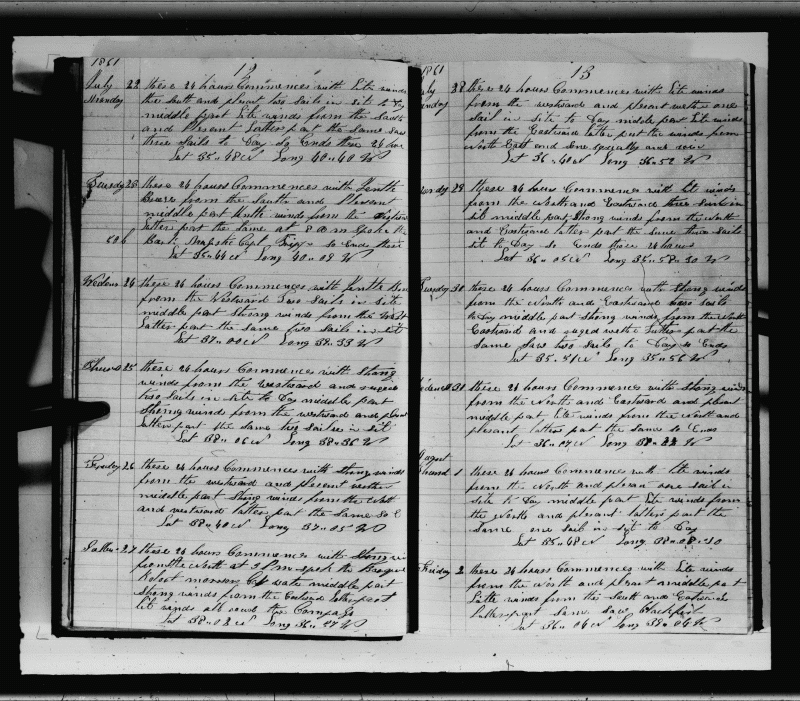 1861
12
July 22 these 24 hours Commences with Lite winds
Monday the South and plesant two Sails in sit to Day
middle part Lite winds from the South
and Plesent Latter part the Same Saw
three Sails to Day So Ends these 24 hours
Lat 35 " 48 N Long 40 " 40 W
Tuesdy 23 these 24 hours Commences with Gentle
from the South and Plesent
middle part Gentle winds from the
Latter part the Same at 8 am Spoke the
Bark Capt So Ends these
Lat 35 " 44 N Long 40 " 08 W
24 these 24 hours Commences with Gentle
from the Westward Two Sails in sit
middle part Strong winds from the West
Latter part the same two Sails in sit
Lat 37 " 00 N Long 39 " 33 W
25 these 24 hours Commences with Strong
winds from the westward and
two Sails in site to Day middle part
Strong winds from the westward and plesent
latter part the Same Sailes in sit
Lat 38 " 06 N Long 38 " 36 W
Friday 26 these 24 hours Commences with Strong winds
from the westward and plesent wether
middle part Strong winds from the North
and westward latter part the Same So E
Lat 38 " 40 N Long 37 " 05 W
27 these 24 hours Commences with Strong
from the North at 3 P m Spok the
Robert middle part
Strong winds from the latter part
lit winds all round the Compass
Lat 38 " 08 N Long 36 " 27 W
1861
13
July 28 these 24 hours Commences with Lite winds
from the westward and plesent wether one
Sail in site to Day middle part Lite winds
from the Eastward latter part the winds from
North East and and rain
Lat 36 " 40 N Long 36 " 52 W
29 these 24 hours Commences with lit winds
from the North and Eastward three Sails in
sit middle part Strong winds from the North
and Eastward latter part the same three Sails
sit to Day So Ends these 24 hours
Lat 36 " 05 N Long 35 " 58 " 30 W
Tuesday 30 these 24 hours Commences with Strong winds
from the North and Eastward two Sails
to Day middle part Strong winds from the North
Eastward and wether latter part the
Same Saw two Sails to Day So Ends
Lat 35 " 51 N Long 35 " 56 W
31 these 24 hours Commences with Strong winds
from the North and Eastward and plesent
middle part Lite winds from the North and
plesant latter part the Same So Ends
Lat 36 " 07 N Long 37 " 22 W
August
1 these 24 hours Commences with Lite winds
from the North and plesen one Sail in
site to Day middle part Lite winds from
the North and plesent latter part the
Same one Sail in sit to Day
Lat 35 " 48 N Long 38 " 08 " 30
Friday 2 these 24 hours Commences with Lite winds
from the North and plesent middle part
Litte winds from the South and Eastward
latter part Same Saw Blackfish
Lat 36 " 06 N Long 39 " 04 W